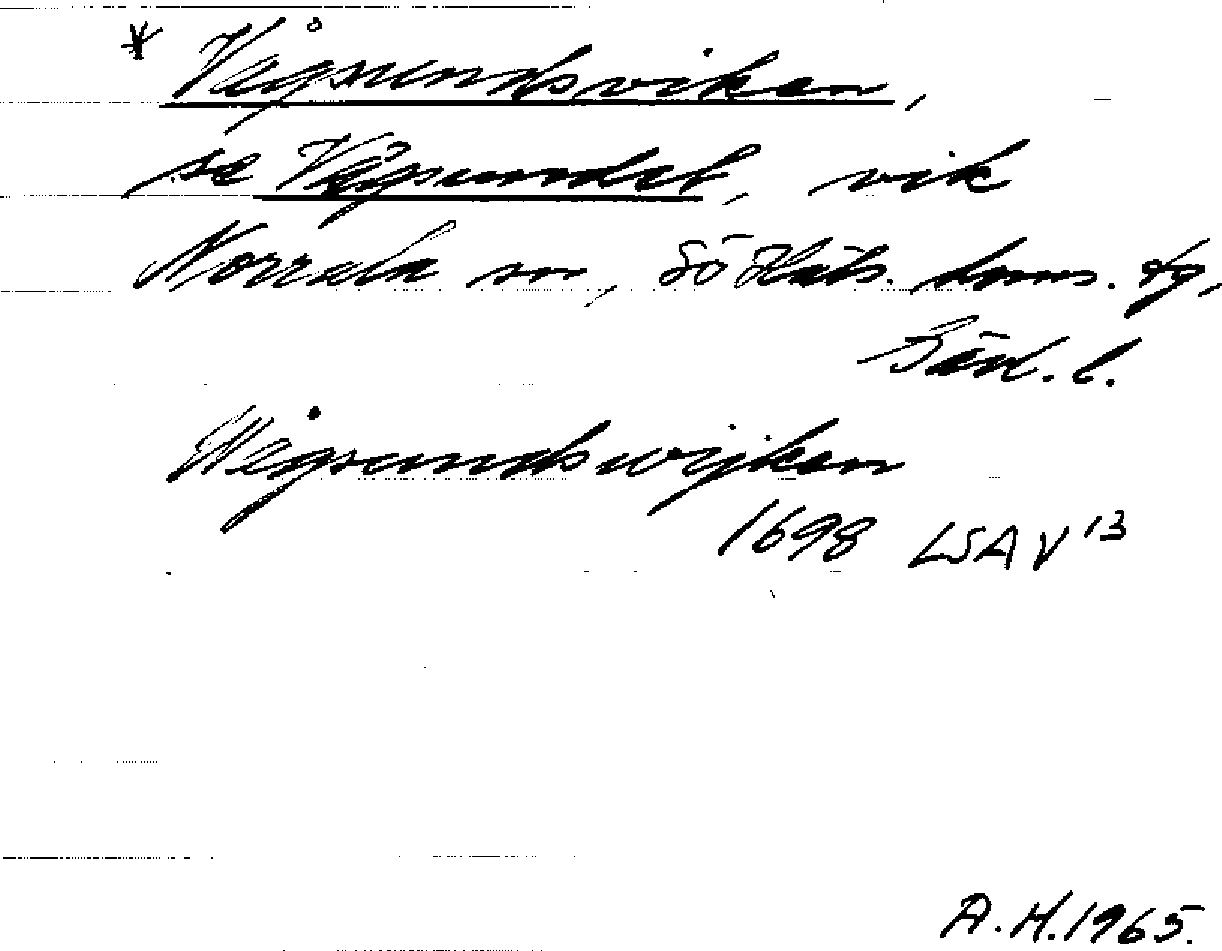 * Vågsundsviken,
se Vågsundet, vik
Norrala sn, Sö Häls. doms. tg,
Gävl. l.
Wågsundswijken
1698 LSA V 13
A.H. 1965.